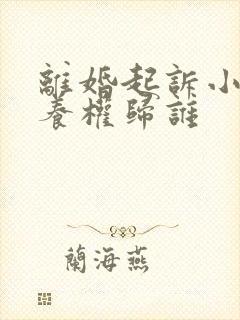 離婚起訴小
養權歸誰
蘭海燕